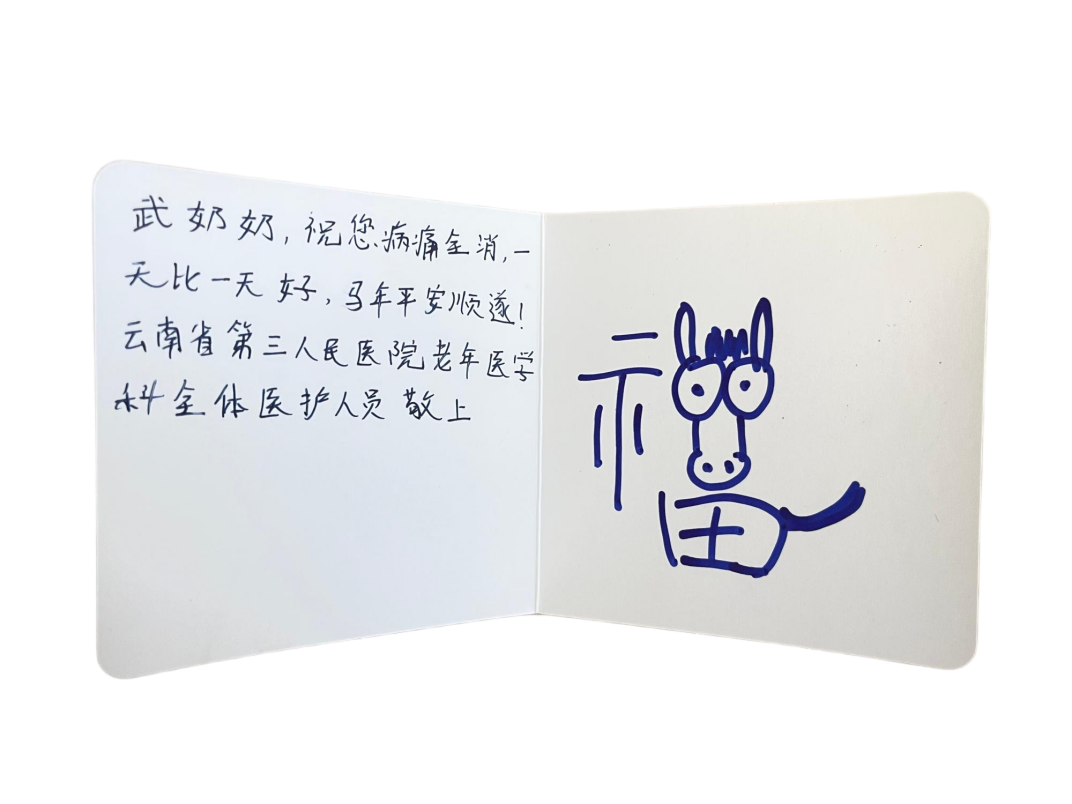 武奶奶,祝您病痛全消,一
天比一天好,马年平安顺遂!
云南省第三人民医院老年医学
科全体医护人员敬上
福